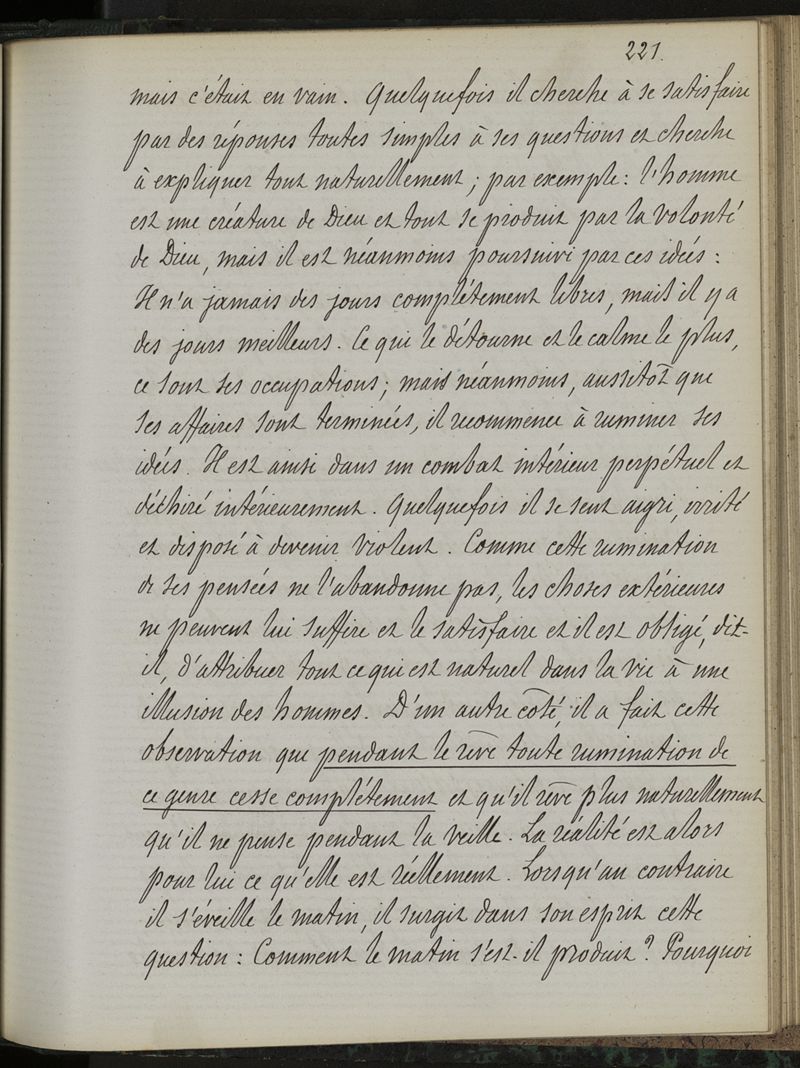 221.
mais c'était en vain. Quelquefois il cherche à se satisfaire
par des réponses toutes simples à ses questions et cherche
à expliquer tout naturellement; par exemple: l'homme
est une créature de Dieu et tout se produit par la volonté
de Dieu, mais il est néanmoins poursuivi par ces idées:
Il n'a jamais des jours complétement libres, mais il y a
des jours meilleurs. Ce qui le détourne et le calme le plus,
ce sont ses occupations; mais néanmoins, aussitôt que
ses affaires sont terminées, il recommence à ruminer ses
idées. Il est ainsi dans un combat intérieur perpétuel et
déchiré intérieurement. Quelquefois il se sent aigri, irrité
et disposé à devenir violent. Comme cette rumination
de ses pensées ne l'abandonne pas, les choses extérieures
ne peuvent lui suffire et le satisfaire et il est obligé, dit-
il, d'attribuer tout ce qui est naturel dans la vie à une
illusion des hommes. D'un autre coté, il a fait cette
observation que pendant le rêve toute rumination de
ce genre cesse complétement et qu'il rêve plus naturellement
qu'il ne pense pendant la veille. La réalité est alors
pour lui ce qu'elle est réellement. Lorsqu'au contraire
il s'éveille le matin, il surgit dans son esprit cette
question: Comment le matin s'est-il produit? Pourquoi